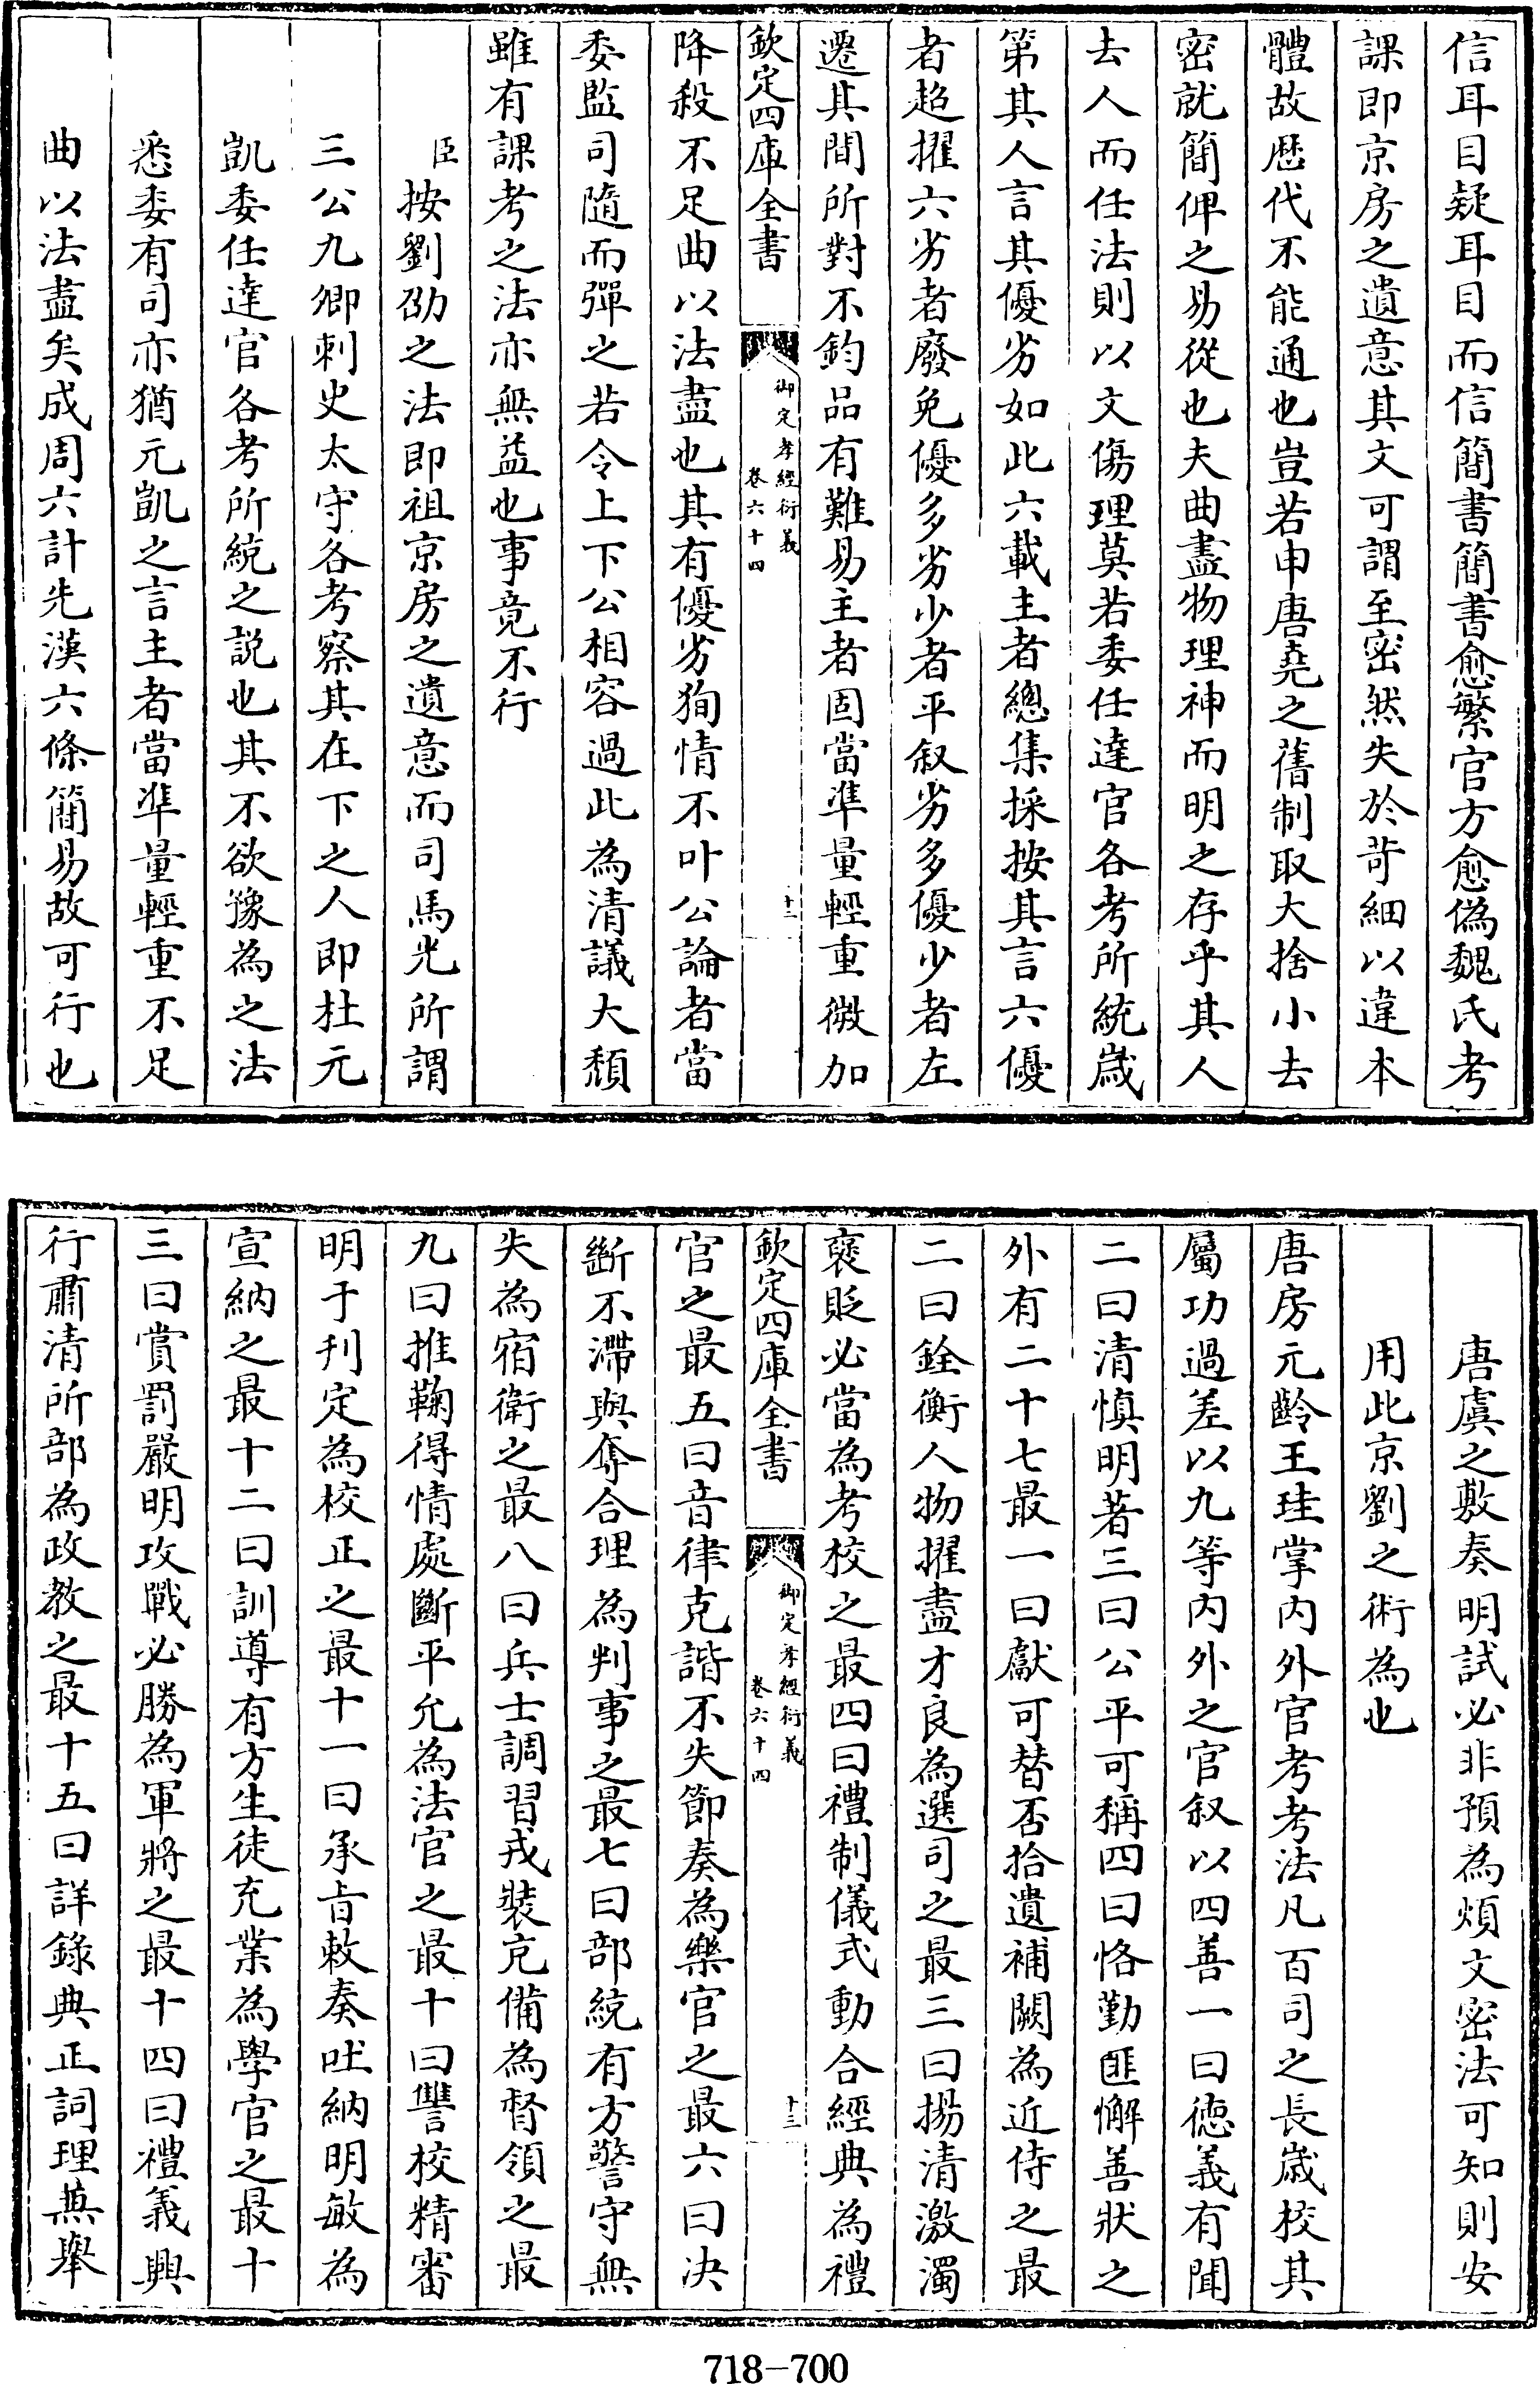 信耳目疑耳目而信簡書簡書愈繁官方愈偽魏氏考
課即京房之遺意其文可謂至密然失於苛細以違本
體故歴代不能通也豈若申唐堯之舊制取大捨小去
密就簡俾之易從也夫曲盡物理神而明之存乎其人
去人而任法則以文傷理莫若委任達官各考所統歲
第其人言其優劣如此六載主者總集採按其言六優
者超擢六劣者廢免優多劣少者平叙劣多優少者左
遷其間所對不鈞品有難易主者固當凖量輕重微加
欽定四庫全書
御定孝經衍義
卷六十四
十二
降殺不足曲以法盡也其有優劣狥情不叶公論者當
委監司隨而彈之若令上下公相容過此為清議大頽
雖有課考之法亦無益也事竟不行
臣按劉劭之法即祖京房之遺意而司馬光所謂
三公九卿刺史太守各考察其在下之人即杜元
凱委任達官各考所統之説也其不欲豫為之法
悉委有司亦猶元凱之言主者當凖量輕重不足
曲以法盡矣成周六計先漢六條簡易故可行也
唐虞之敷奏明試必非預為煩文密法可知則安
用此京劉之術為也
唐房元齡王珪掌内外官考考法凡百司之長歲校其
屬功過差以九等内外之官叙以四善一曰德義有聞
二曰清慎明著三曰公平可稱四曰恪勤匪懈善狀之
外有二十七最一曰獻可替否拾遺補闕為近侍之最
二曰銓衡人物擢盡才良為選司之最三曰揚清激濁
褒貶必當為考校之最四曰禮制儀式動合經典為禮
欽定四庫全書
御定孝經衍義
卷六十四
十三
官之最五曰音律克諧不失節奏為樂官之最六曰决
斷不滯與奪合理為判事之最七曰部統有方警守無
失為宿衛之最八曰兵士調習戎裝充備為督領之最
九曰推鞫得情處斷平允為法官之最十曰讐校精審
明于刋定為校正之最十一曰承旨敕奏吐納明敏為
宣納之最十二曰訓導有方生徒充業為學官之最十
三曰賞罰嚴明攻戰必勝為軍將之最十四曰禮義興
行肅清所部為政教之最十五曰詳錄典正詞理兼舉
718-700